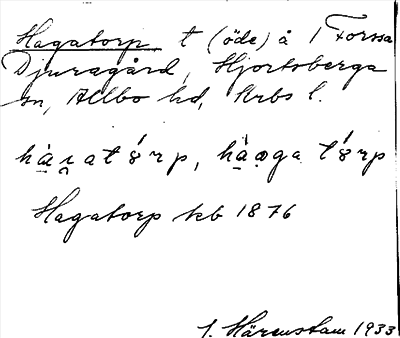 Hagatorp t (öde) å 1 Forssa
Djuragård, Hjortsberga
sn, Allbo hd, Krbs l.
Hagatorp kb 1876
J. Härenstam 1933